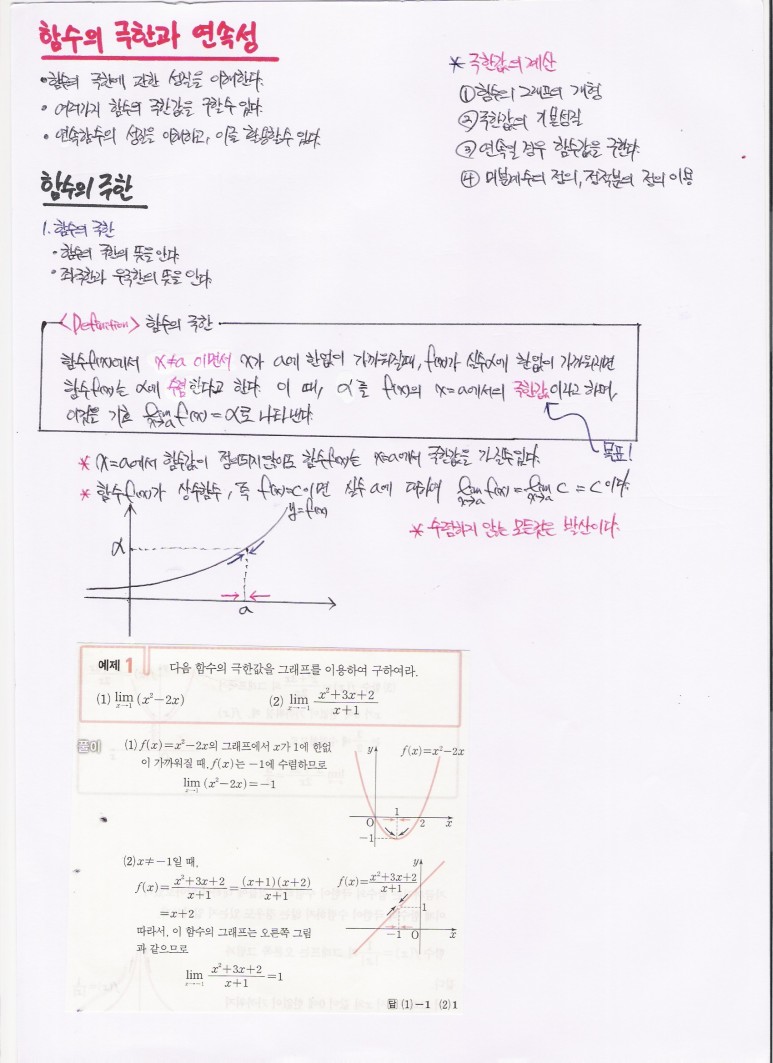 함수의 극한과 연속성
• 함수의 극한에 관한 성질을 이해한다.
• 여러가지 함수의 극한값을 구할수 있다.
• 연속함수의 성질을 이해하고, 이를 활용할수 있다.
* 극한값의 계산
① 함수의 그래프의 개형
② 극한값의 기본성질
③ 연속일 경우 함수값을 구한다.
④ 미분계수의 정의, 정적분의 정의 이용
함수의 극한
1. 함수의 극한
• 함수의 극한의 뜻을 안다.
• 좌극한과 우극한의 뜻을 안다.
<Definition> 함수의 극한
함수 f(x)에서 x≠a 이면서 x가 a에 한없이 가까워질때, f(x)가 실수α에 한없이 가까워지면
함수 f(x)는 α에 수렴한다고 한다. 이 때, α를 f(x)의 x=a에서의 극한값이라고 하며,
이것을 기호 lim x→a f(x)=α로 나타낸다.
목표!
* x=a에서 함수값이 정의되지않아도 함수f(x)는 x=a에서 극한값을 가질수있다.
* 함수 f(x)가 상수함수, 즉 f(x)=c이면 실수 a에 대하여 lim x→a f(x)=lim x→a c = c이다.
y=f(x)
* 수렴하지 않는 모든것은 발산이다.
α
a
예제 1 다음 함수의 극한값을 그래프를 이용하여 구하여라.
(1) lim x→1 (x²−2x) (2) lim x→−1 (x²+3x+2)/(x+1)
풀이 (1) f(x)=x²−2x의 그래프에서 x가 1에 한없
이 가까워질 때, f(x)는 −1에 수렴하므로
lim x→1 (x²−2x)=−1
y f(x)=x²−2x
1
O 2 x
−1
(2) x≠−1일 때,
f(x)=(x²+3x+2)/(x+1)=((x+1)(x+2))/(x+1)
=x+2
따라서, 이 함수의 그래프는 오른쪽 그림
과 같으므로
lim x→−1 (x²+3x+2)/(x+1)=1
y
f(x)=(x²+3x+2)/(x+1)
1
−1 O x
답 (1) −1 (2) 1